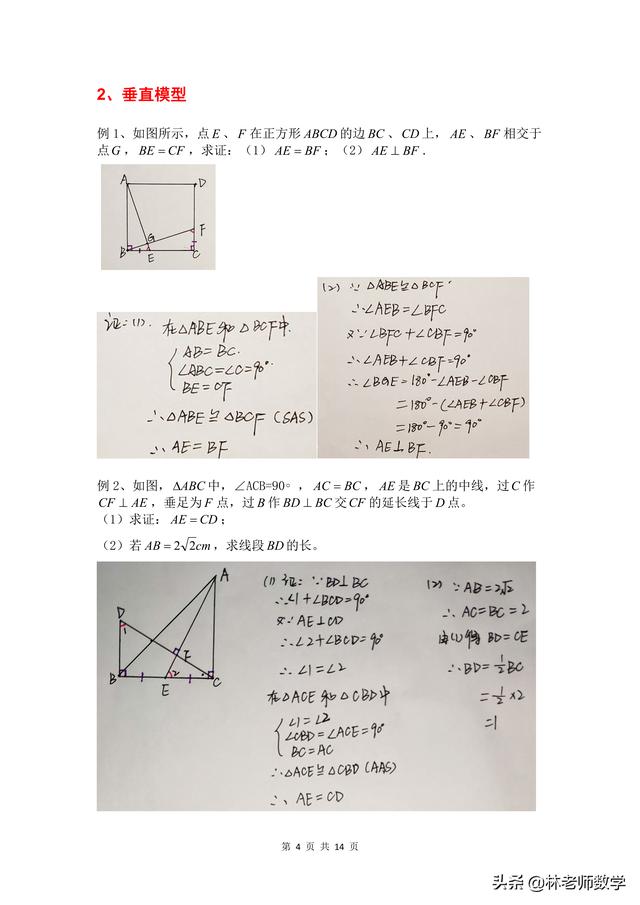 2、垂直模型
例 1、如图所示，点 E 、 F 在正方形 ABCD 的边 BC 、 CD 上， AE 、 BF 相交于
点 G ， BE = CF ，求证：（1） AE = BF ；（2） AE ⊥ BF .
A
D
G
F
B
E
C
证:(1). 在△ABE和△BCF中.
AB=BC.
∠ABC=∠C=90°.
BE=CF
∴△ABE≌△BCF (SAS)
∴ AE=BF
(2) ∵ △ABE≌△BCF
∴∠AEB=∠BFC
又∵∠BFC+∠CBF=90°
∴∠AEB+∠CBF=90°
∴∠BGE=180°-∠AEB-∠CBF
=180°-(∠AEB+∠CBF)
=180°-90°=90°
∴ AE⊥BF.
例 2、如图，ΔABC 中，∠ACB=90°， AC = BC ， AE 是 BC 上的中线，过 C 作
CF ⊥ AE ，垂足为 F 点，过 B 作 BD ⊥ BC 交 CF 的延长线于 D 点。
（1）求证： AE = CD ；
（2）若 AB = 2√2cm ，求线段 BD 的长。
A
D
1
F
2
B
E
C
(1) 证: ∵BD⊥BC
∴∠1+∠BCD=90°
又∵AE⊥CD
∴∠2+∠BCD=90°
∴∠1=∠2
在△ACE和△CBD中
∠1=∠2
∠CBD=∠ACE=90°
BC=AC
∴△ACE≌△CBD (AAS)
∴ AE=CD
(2) ∵AB=2√2
∴ AC=BC=2
由(1)得 BD=CE
∴BD=1/2BC
=1/2×2
=1
第 4 页 共 14 页
头条 @林老师数学